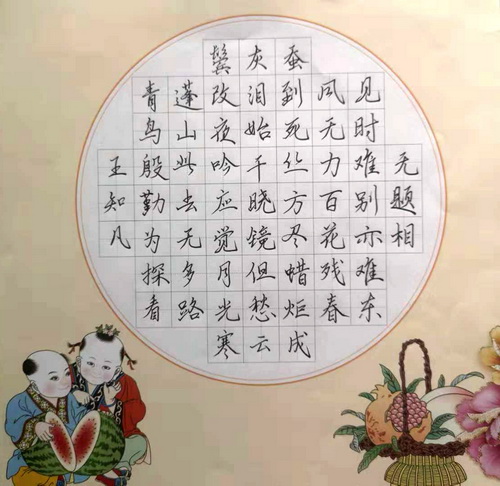 无题相
见时难别亦难东
风无力百花残春
蚕到死丝方尽蜡炬成
灰泪始干晓镜但愁云
鬓改夜吟应觉月光寒
蓬山此去无多路
青鸟殷勤为探看
王知凡